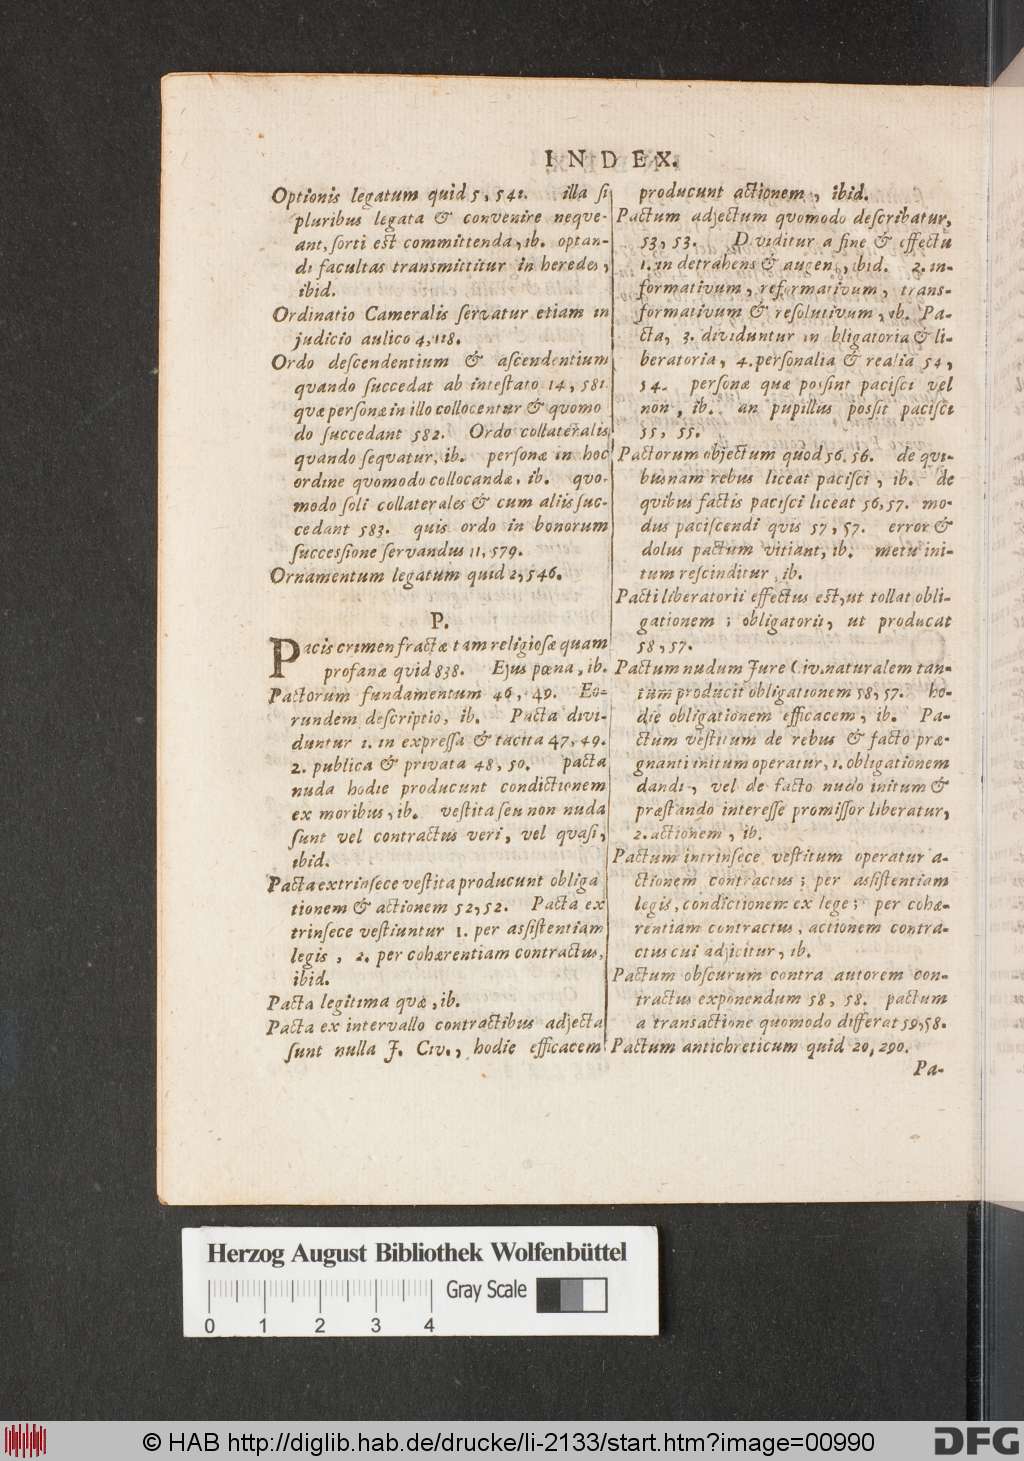 INDEX.
Optionis legatum quid 5, 541. illa si
pluribus legata & convenire neque-
ant, sorti est committenda, ib. optan-
di facultas transmittitur in heredes,
ibid.
Ordinatio Cameralis servatur etiam in
judicio aulico 4, 118.
Ordo descendentium & ascendentium
quando succedat ab intestato 14, 581
quæ personæ in illo collocentur & quomo
do succedant 582. Ordo collateralis
quando sequatur, ib. personæ in hoc
ordine quomodo collocandæ, ib. quo-
modo soli collaterales & cum aliis suc-
cedant 583. quis ordo in bonorum
successione servandus 11, 579.
Ornamentum legatum quid 2, 546.
P.
Pacis crimen fractæ tam religiosæ quam
profanæ quid 838. Ejus pœna, ib.
Pactorum fundamentum 46, 49. Eo-
rundem descriptio, ib. Pacta divi-
duntur 1. in expressa & tacita 47, 49.
2. publica & privata 48, 50. pacta
nuda hodie producunt condictionem
ex moribus, ib. vestita seu non nuda
sunt vel contractus veri, vel quasi,
ibid.
Pacta extrinsece vestita producunt obliga
tionem & actionem 52, 52. Pacta ex
trinsece vestiuntur 1. per assistentiam
legis, 2. per cohærentiam contractus,
ibid.
Pacta legitima quæ, ib.
Pacta ex intervallo contractibus adjecta
sunt nulla J. Civ., hodie efficacem
producunt actionem, ibid.
Pactum adjectum qvomodo describatur,
53, 53. Dividitur a fine & effectu
1. in detrahens & augens, ibid. 2. in-
formativum, reformativum, trans-
formativum & resolutivum, ib. Pa-
cta, 3. dividuntur in obligatoria & li-
beratoria, 4. personalia & realia 54,
54. personæ quæ possint pacisci vel
non, ib. an pupillus possit pacisci
55, 55.
Pactorum objectum quod 56, 56. de qvi-
busnam rebus liceat pacisci, ib. de
qvibus factis pacisci liceat 56, 57. mo-
dus paciscendi qvis 57, 57. error &
dolus pactum vitiant, ib. metu ini-
tum rescinditur, ib.
Pacti liberatorii effectus est, ut tollat obli-
gationem; obligatorii, ut producat
58, 57.
Pactum nudum Jure Civ. naturalem tan-
tum producit obligationem 58, 57. ho-
die obligationem efficacem, ib. Pa-
ctum vestitum de rebus & facto præ-
gnanti initum operatur, 1. obligationem
dandi, vel de facto nudo initum &
præstando interesse promissor liberatur,
2. actionem, ib.
Pactum intrinsece vestitum operatur a-
ctionem contractus; per assistentiam
legis, condictionem ex lege; per cohæ-
rentiam contractus, actionem contra-
ctus cui adjicitur, ib.
Pactum obscurum contra autorem con-
tractus exponendum 58, 58. pactum
a transactione quomodo differat 59, 58.
Pactum antichreticum quid 20, 290.
Pa-
Herzog August Bibliothek Wolfenbüttel
Gray Scale
0 1 2 3 4
© HAB http://diglib.hab.de/drucke/li-2133/start.htm?image=00990
DFG